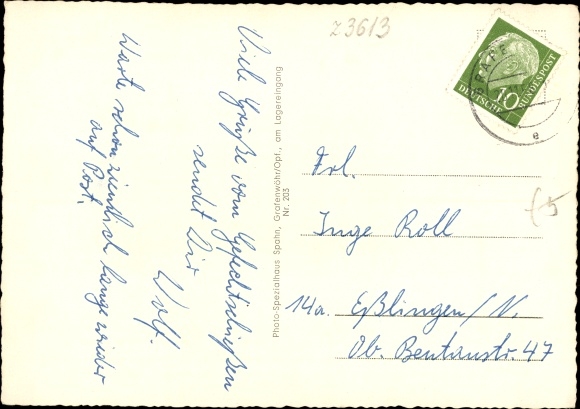 z3613
Viele Grüße vom Gefechtschießen
sendet Dir
Wolf.
Warte schon ziemlich lange wieder
auf Post.
Photo-Spezialhaus Spahn, Grafenwöhr/Opf., am Lagereingang
Nr. 203
DEUTSCHE BUNDESPOST
10
e
Frl.
Inge Roll
14a. Eßlingen/N.
Ob. Beutaustr. 47